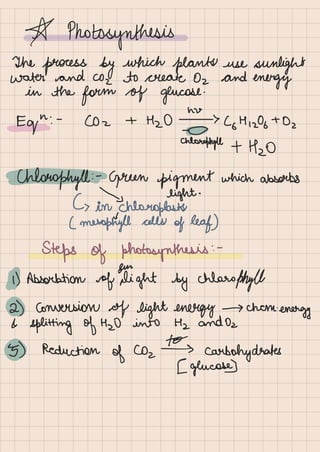 ☆ Photosynthesis
The process by which plants use sunlight
water and CO2 to create O2 and energy
in the form of glucose.
Eqn:- CO2 + H2O hν → C6H12O6 + O2
Chlorophyll + H2O
Chlorophyll:- Green pigment which absorbs
light.
↳ in chloroplasts
(mesophyll cells of leaf)
Steps of photosynthesis:-
1) Absorbtion of sun light by chlorophyll
2) Conversion of light energy → chem energy
& splitting of H2O into H2 and O2
3) Reduction of CO2 to → carbohydrates
[glucose]